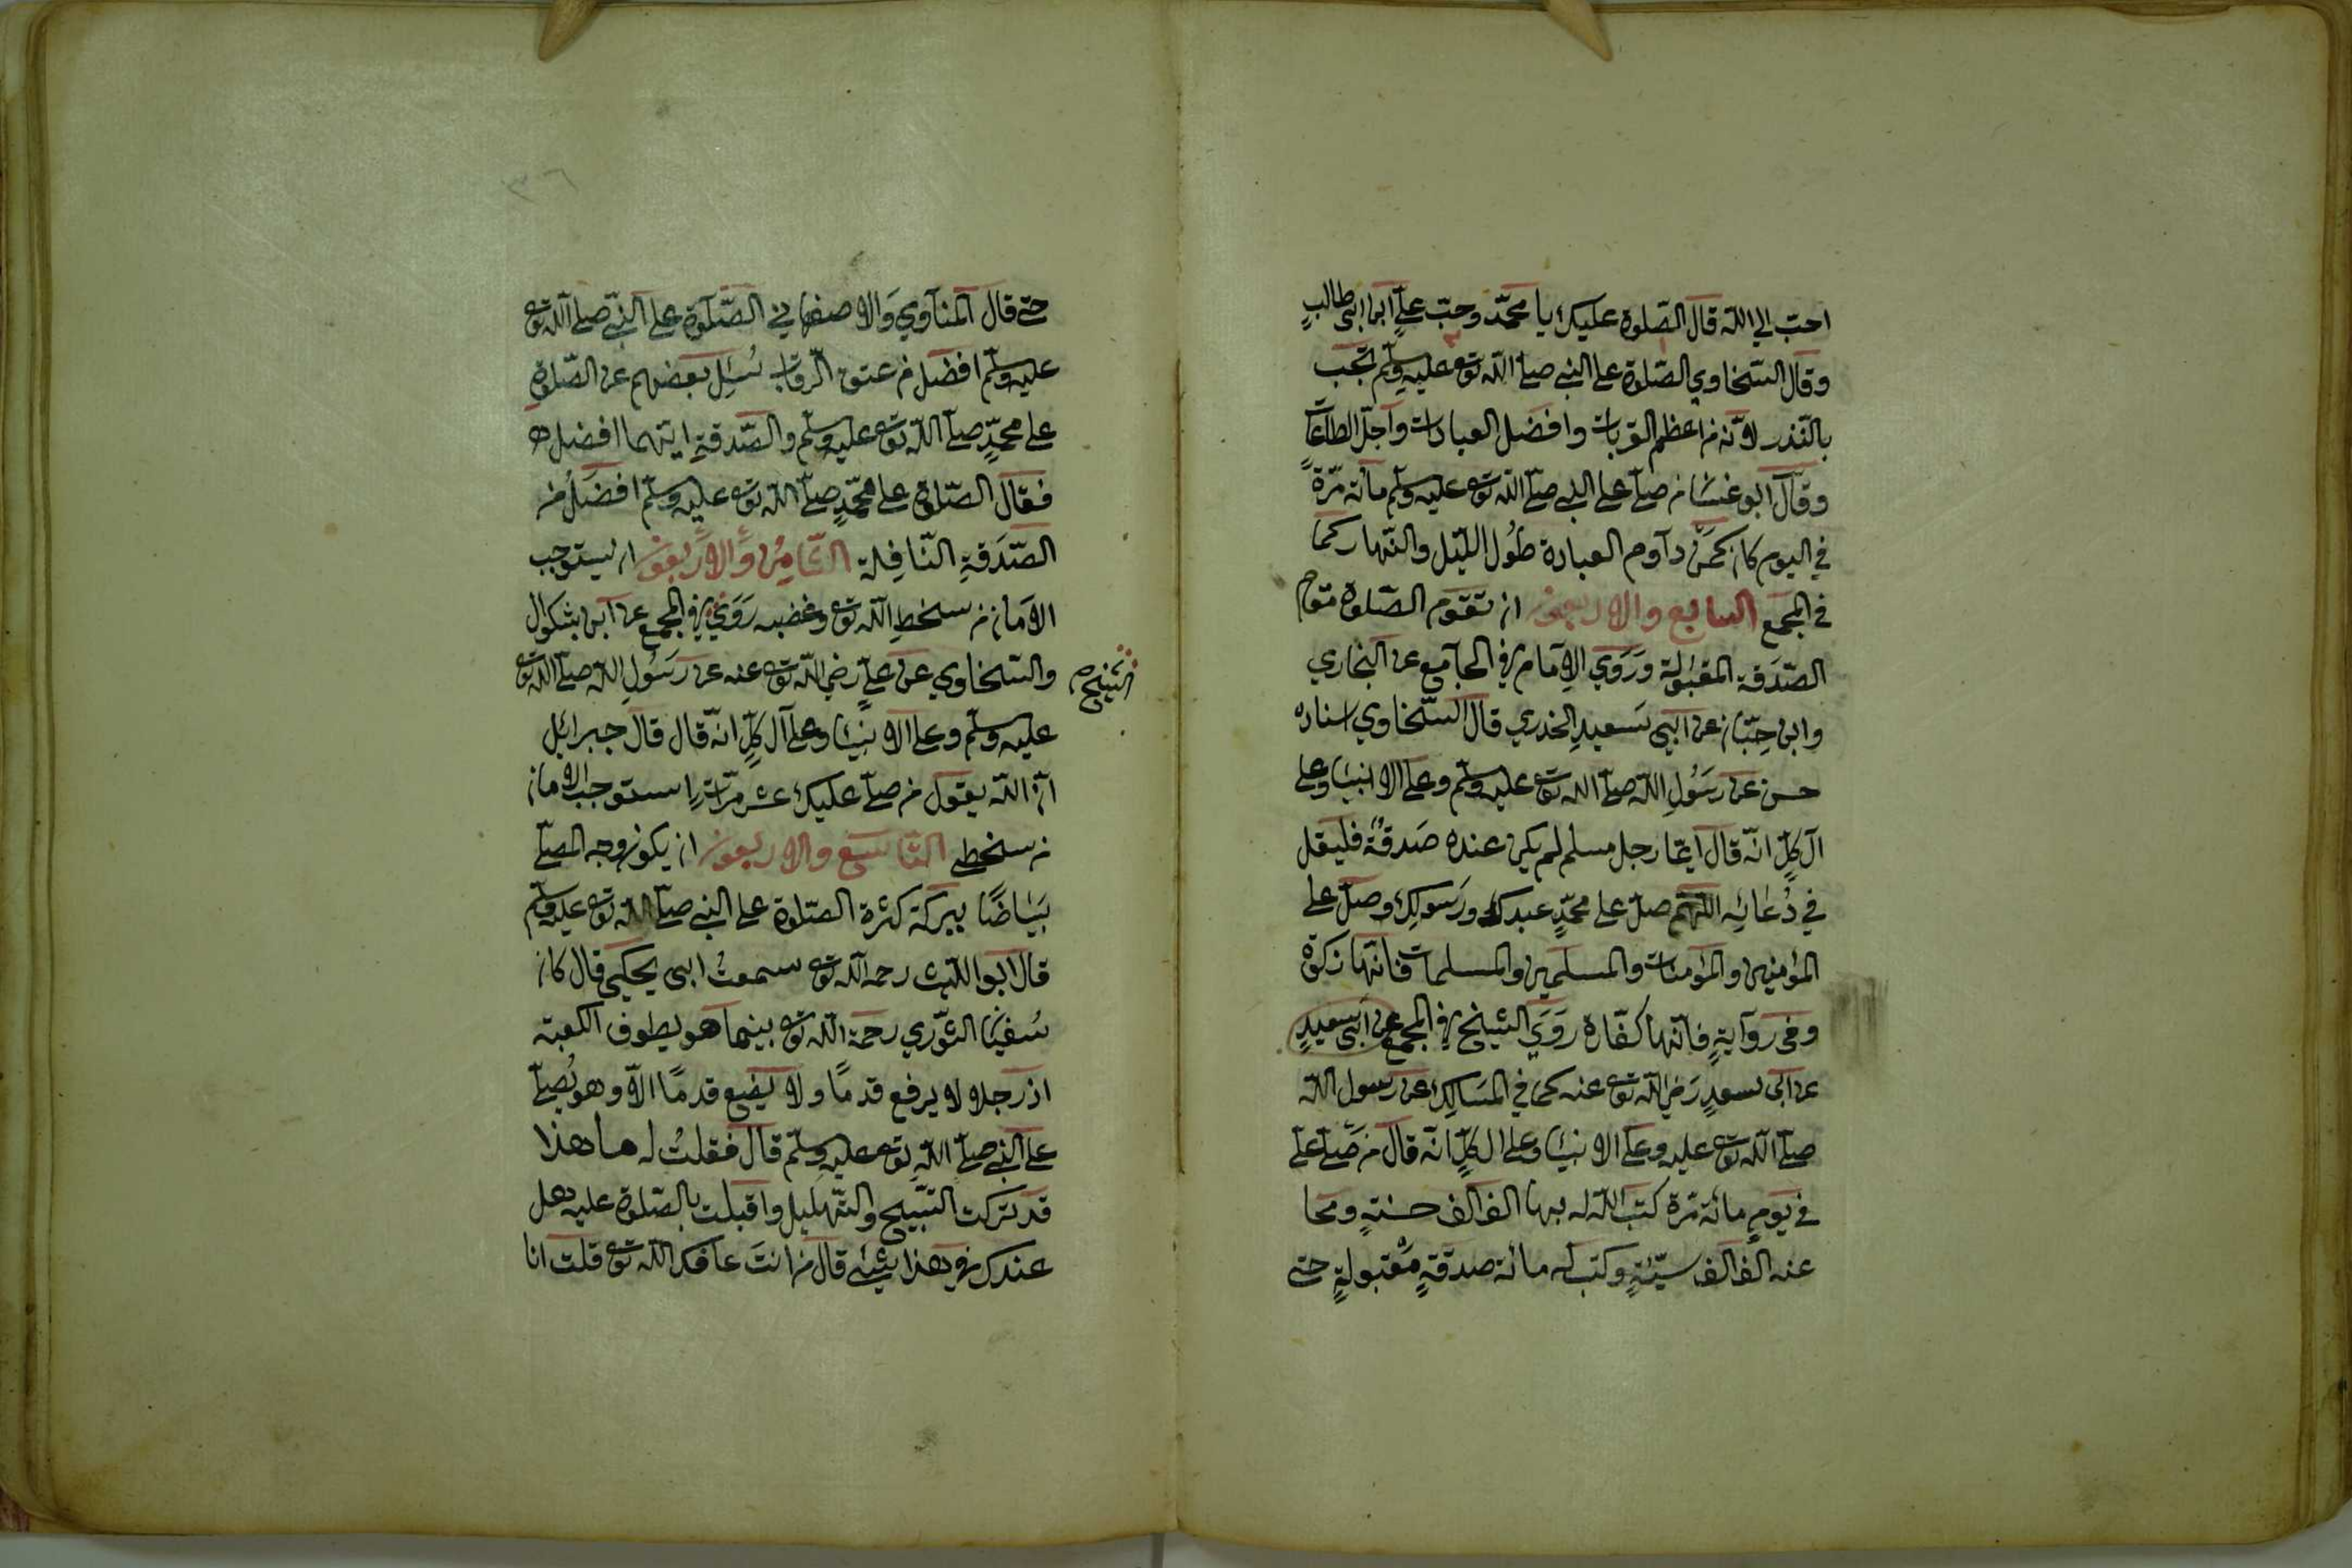 احبّ الي اللّه قال الصّلوة عليك يا محمّد وحبّ عليّ ابن ابى طالبٍ
وقال السّخاوي الصّلوة على النبي صلّى اللّه تع عليه وسلّم تجب
بالنّذر لانّه من اعظم القربات وافضل العبادات واجلّ الطاعات
وقال ابو غسّان من صلّى على النبي صلّى اللّه تع عليه وسلّم مائة مرّة
في اليوم كان كمن داوم العبادة طُول اللّيل والنّهار كما
في المجمع السابع والاربعون ان تقوم الصّلوة مقام
الصّدَقة المقبولة ورَوَي الامام في الجامع عن البخاري
وابن حِبّان عن ابى سَعيدِ الخدري قال السّخاوي اسناده
حسن عن رسُولِ اللّه صلّى اللّه تع عليه وسلّم وعلى الانبياء وعلى
آل كلٍّ انّه قال ايّما رجل مسلم لم يكن عنده صَدقةٌ فليقل
في دُعائِه اللّهمّ صلّ على محمّدٍ عبدك ورَسولِك وصلّ على
المؤمنين والمؤمنات والمسلمين والمسلمات فانّها زكوة
وفى روايةٍ فانّها كفّارة رَوَي الشّيخ في المجمع عن ابى سعيدٍ
عن ابى سعدٍ رَضي اللّه تع عنه كما في المسَالِك عن رسول اللّه
صلّى اللّه تع عليه وعلى الانبياء وعلى ال كلٍّ انّه قال من صَلّى علىّ
في يومٍ مائة مرّة كتب اللّه له بها الف الف حسنةٍ ومحا
عنه الف الف سيّئةٍ وكتب له مائة صدقةٍ مقبولةٍ حتى
٣٦
حتى قال المناوي والاصفهاني الصّلوة على النّبي صلّى اللّه تع
عليه وسلّم افضل من عتق الرّقاب سُئِل بعضهم عن الصّلوةِ
على محمّدٍ صلّى اللّه تع عليه وسلّم والصّدقةِ ايّهما افضل
فقال الصّلوة على محمّدٍ صلّى اللّه تع عليه وسلّم افضَلُ من
الصّدَقةِ النّافِلة الثّامِن والاربعون ان يستوجب
الامان من سخطِ اللّه تع وغضبه رَوَي في المجمع عن ابن بشكوال
الشيخ
والسّخاوي عن عليّ رضي اللّه تع عنه عن رَسُولِ اللّه صلّى اللّه تع
عليه وسلّم وعلى الانبياء وعلى آل كلٍّ انّه قال قال جبرائيل
انّ اللّه يقول من صلّى عليك عشر مرّات استوجب الامان
من سخطي التّاسع والاربعون ان يكون وجه المصلّي
بَيَاضًا ببركة كثرة الصّلوة على النبي صلّى اللّه تع عليه وسلّم
قال ابو اللّيث رحمه اللّه تع سمعتُ ابى يحكي قال كان
سُفيان الثّوري رحمة اللّه تع بينما هو يطوف الكعبة
اذ رجلا لا يرفع قدمًا ولا يضع قدمًا الّا وهو يُصلّي
على النّبي صلّى اللّهِ تع عليه وسلّم قال فقلتُ له ما هذا
قد تركت التّسبيح والتّهليل واقبلت بالصّلوة عليه هل
عندك في هذا شيئ قال من انت عافاك اللّه تع قلت انا